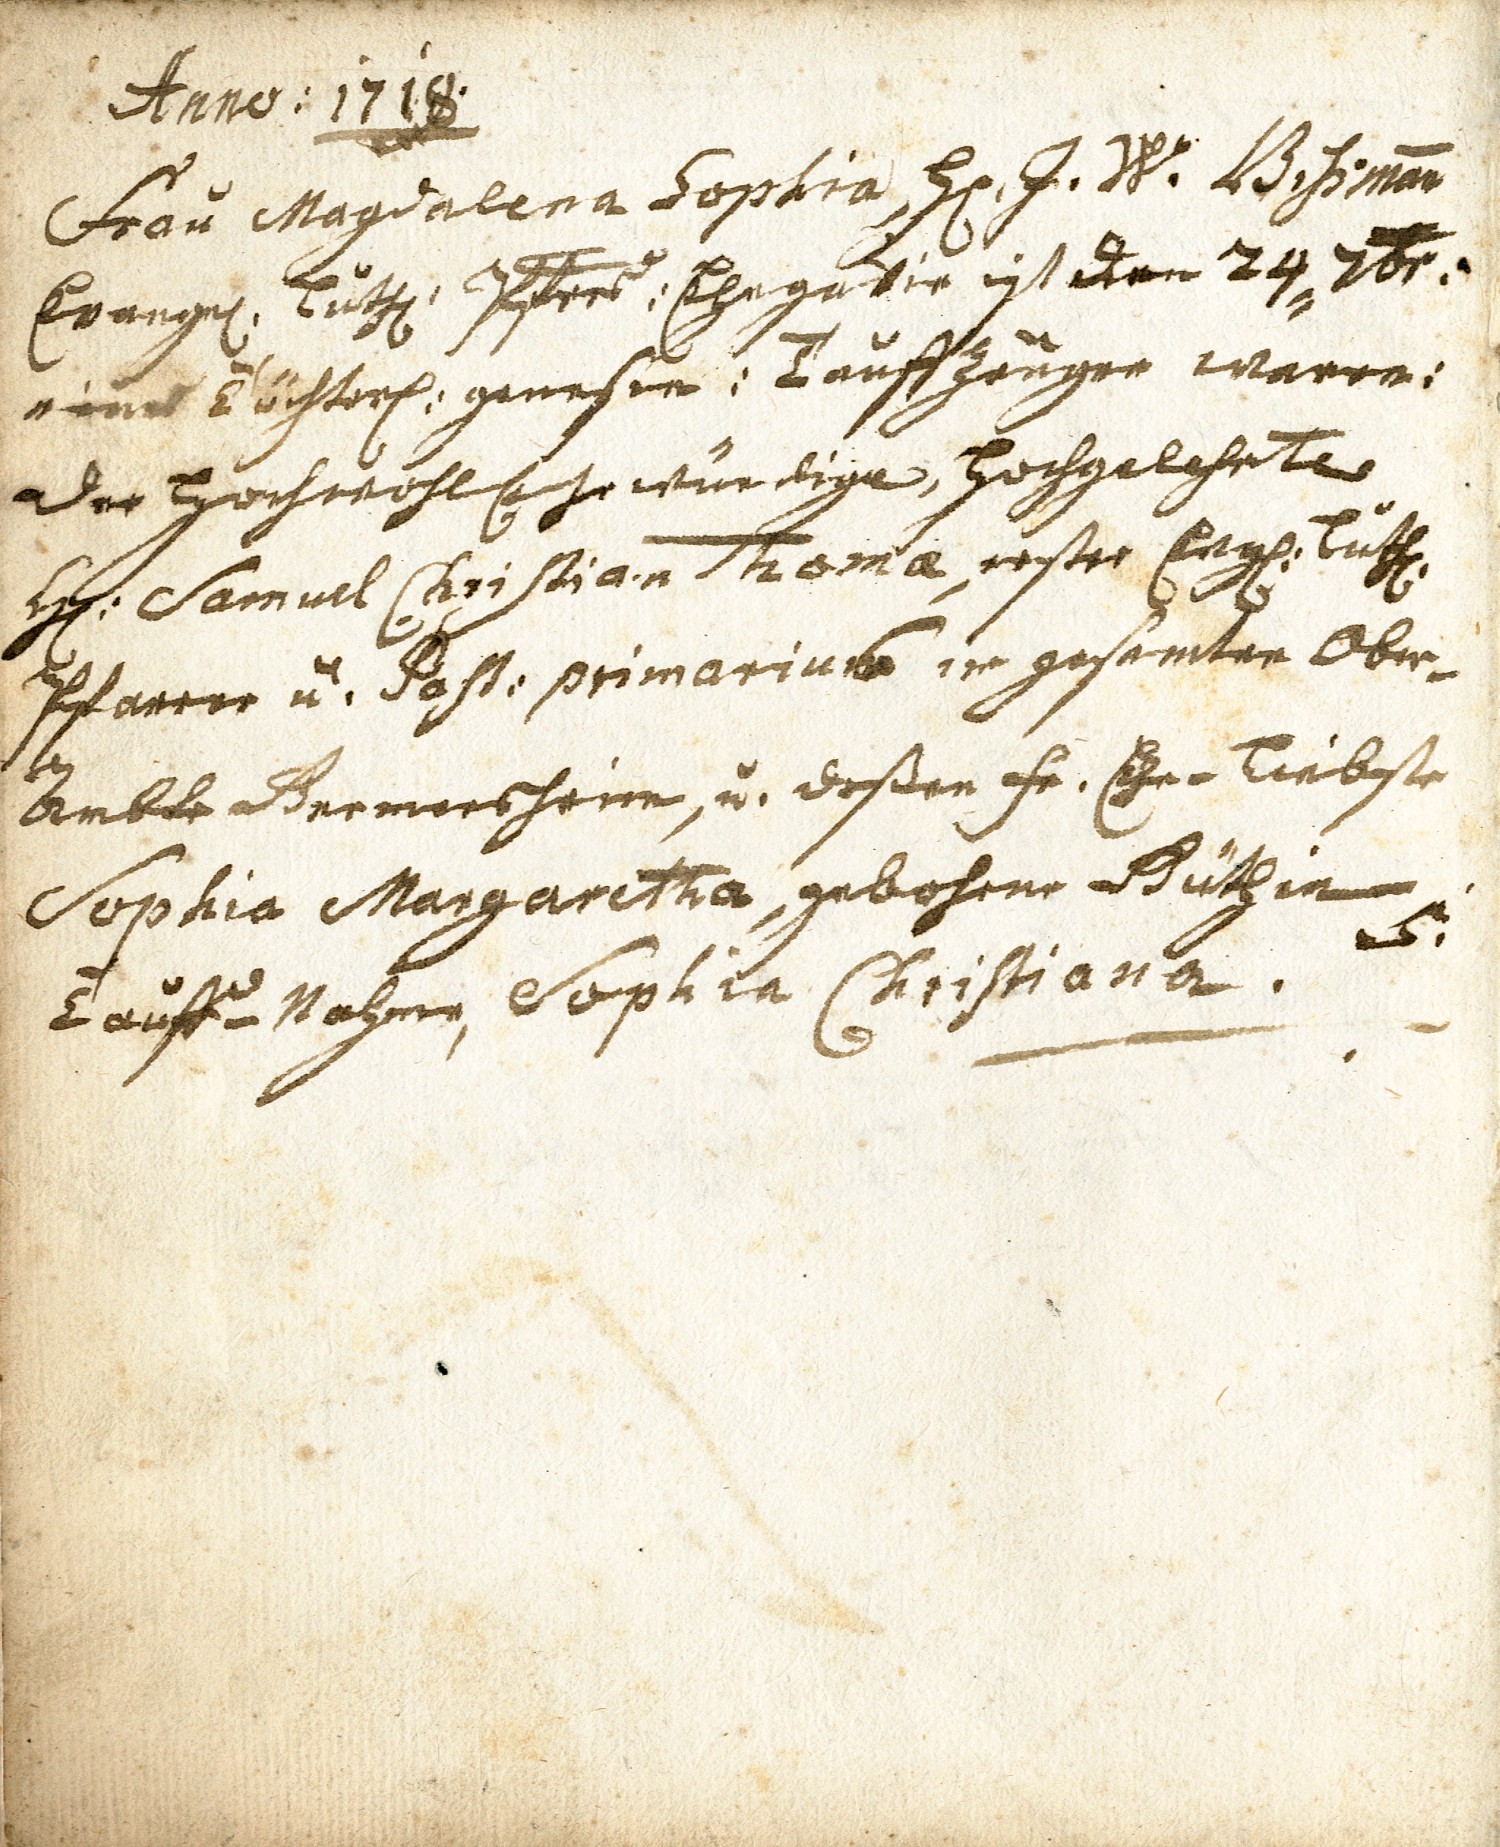 Anno: 1718.
Frau Magdalena Sophia, H. J. W.
Evangel. Luth. Pfrs: Ehegattin ist den 24 7br.
eines Töchterl: genesen: Tauffzeugen waren:
der Hochwohl Ehrwürdige, Hochgelehrte
H: Samuel Christian Thoma, erster Evgl: Luth.
Pfarrer u. Past: primarius im gesamten Ober-
Ambte Germersheim, u. deßen Fr. Ehe-Liebste
Sophia Margaretha, gebohrne
Tauff-Nahme, Sophia Christiana.